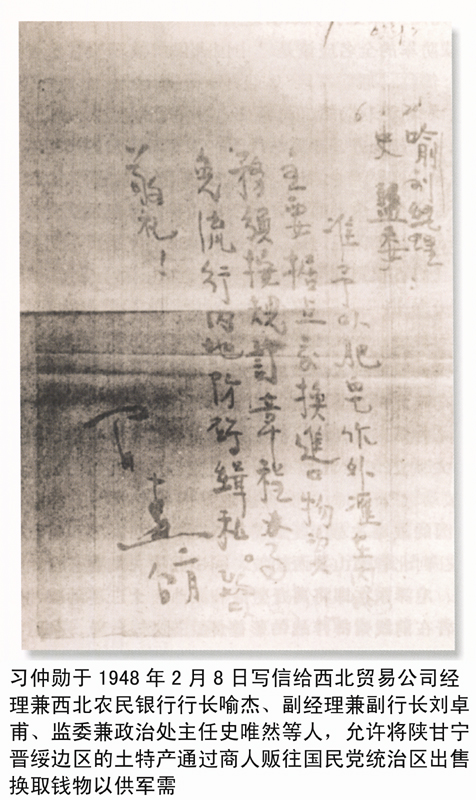 喻刘經理:
史 監委
准予以肥皂作外滙在
主要据点交換進口物资
務須按規訂章程
免流行内地防碍緝私。
敬礼!
二月
习仲勋于 1948 年 2 月 8 日写信给西北贸易公司经
理兼西北农民银行行长喻杰、副经理兼副行长刘卓
甫、监委兼政治处主任史唯然等人，允许将陕甘宁
晋绥边区的土特产通过商人贩往国民党统治区出售
换取钱物以供军需